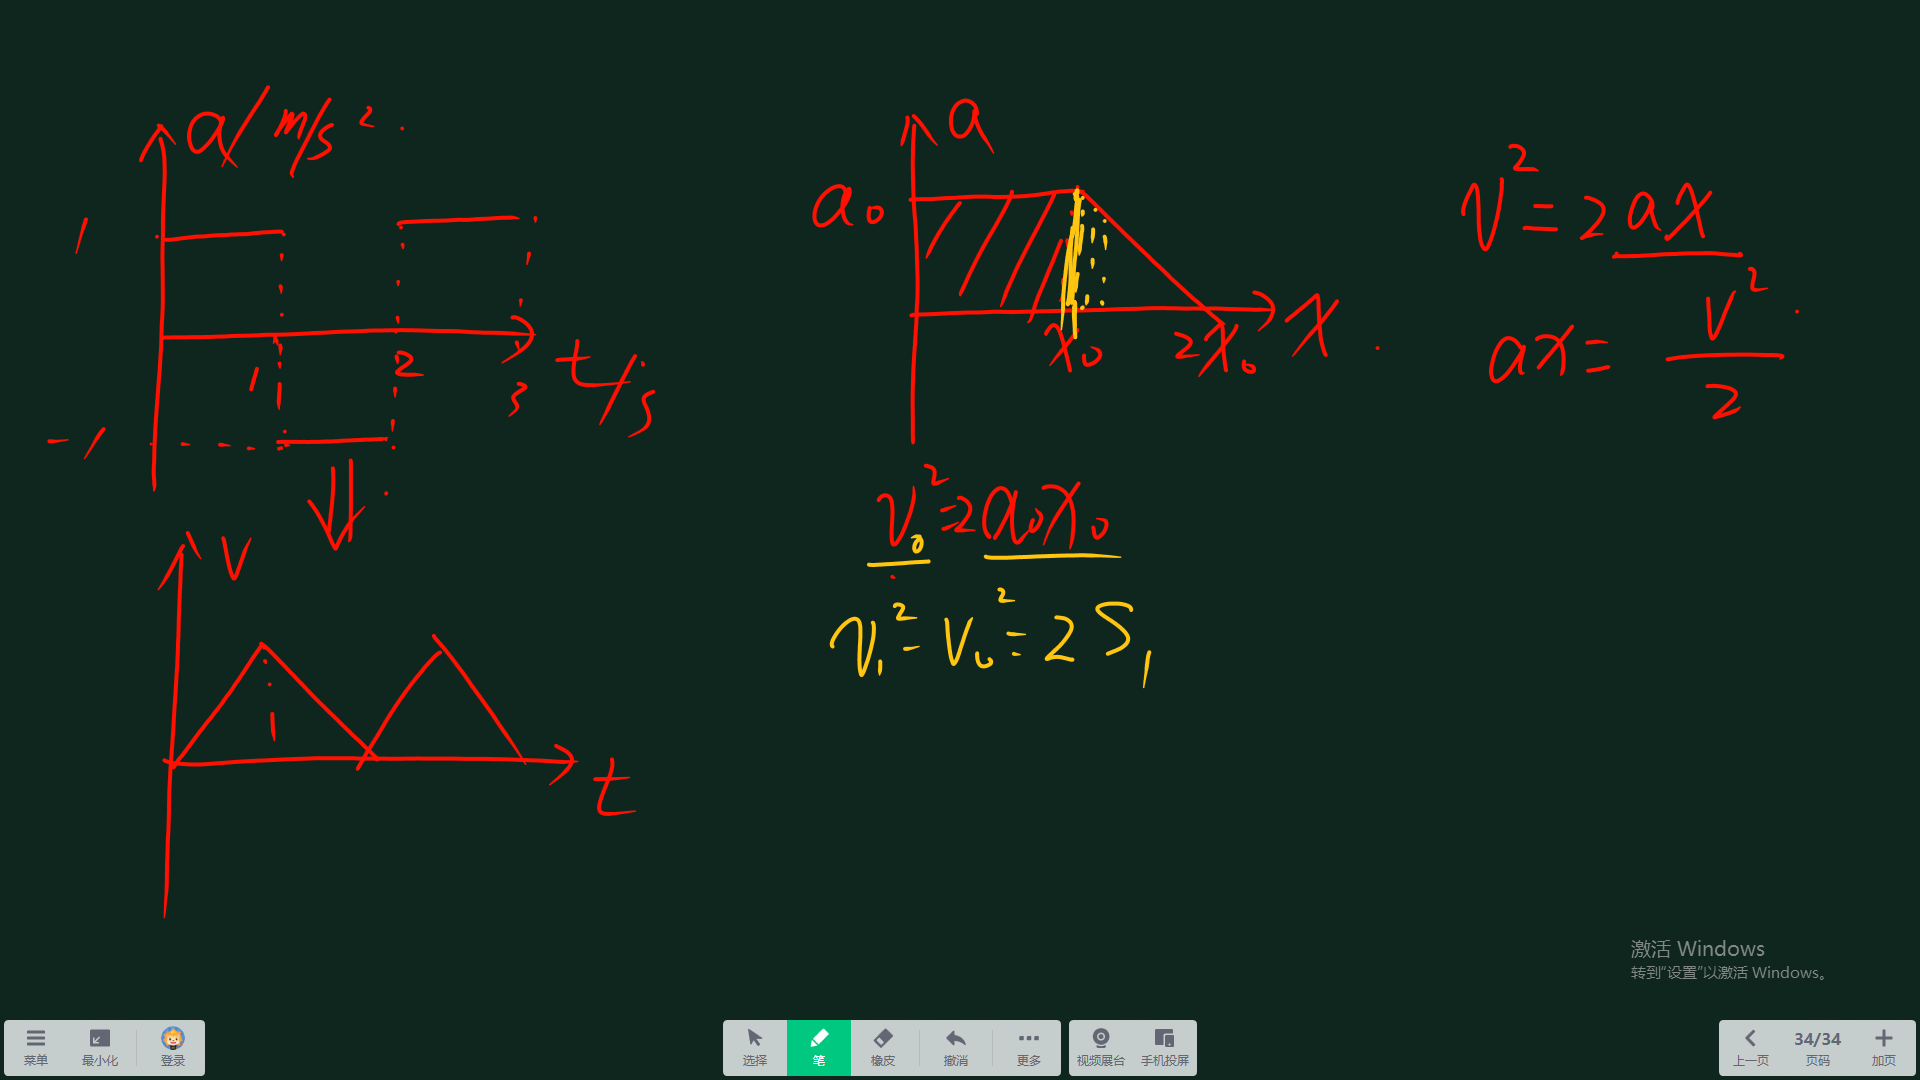 a/m/s²
1
1
2
3
t/s
-1
v
1
t
a
a₀
x₀
2x₀
x
v₀²=2a₀x₀
v₁²-v₀²=2S₁
v²=2ax
ax=v²/2
激活 Windows
转到“设置”以激活 Windows。
菜单
最小化
登录
选择
笔
橡皮
撤消
更多
视频展台
手机投屏
上一页
34/34
页码
加页